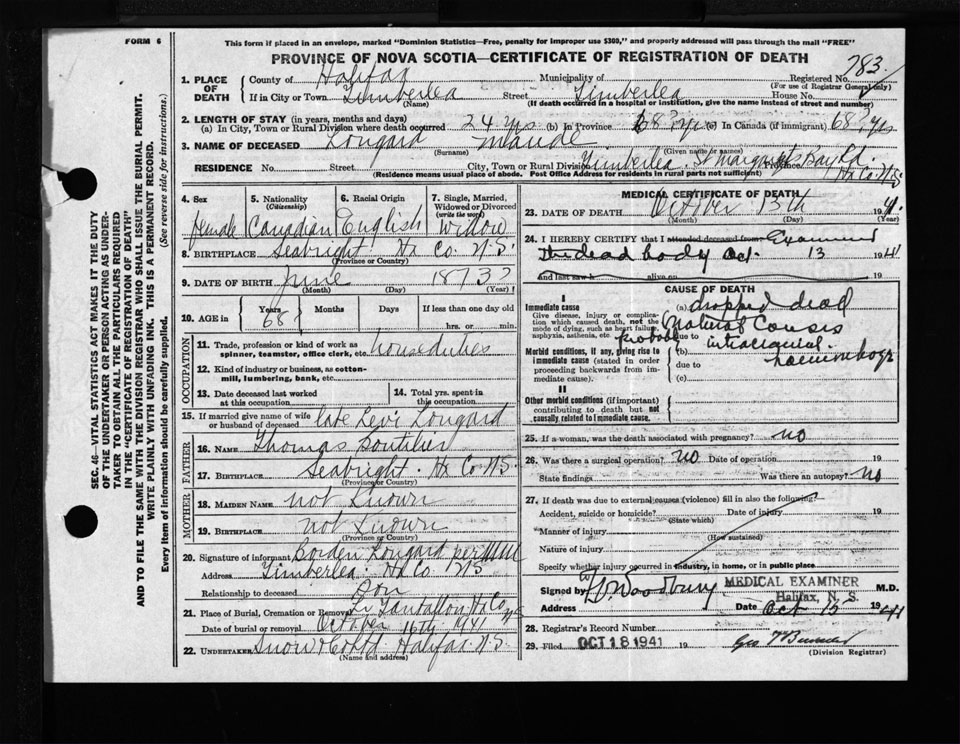 FORM 6
This form if placed in an envelope, marked "Dominion Statistics—Free, penalty for improper use $300," and properly addressed will pass through the mail "FREE"
PROVINCE OF NOVA SCOTIA—CERTIFICATE OF REGISTRATION OF DEATH
SEC. 46—VITAL STATISTICS ACT MAKES IT THE DUTY
OF THE UNDERTAKER OR PERSON ACTING AS UNDER-
TAKER TO OBTAIN ALL THE PARTICULARS REQUIRED
IN THE "CERTIFICATE OF REGISTRATION OF DEATH"
AND TO FILE THE SAME WITH THE DIVISION REGISTRAR WHO SHALL ISSUE THE BURIAL PERMIT.
WRITE PLAINLY WITH UNFADING INK. THIS IS A PERMANENT RECORD.
Every item of information should be carefully supplied. (See reverse side for instructions.)
1. PLACE OF DEATH
County of Halifax Municipality of Registered No. 783
(For use of Registrar General only)
If in City or Town Timberlea Street Timberlea House No.
(Name) (If death occurred in a hospital or institution, give the name instead of street and number)
2. LENGTH OF STAY (in years, months and days)
(a) In City, Town or Rural Division where death occurred 24 yrs (b) In Province 68? yrs (c) In Canada (if immigrant) 68? yrs
3. NAME OF DECEASED Longard Maude
(Surname) (Given name or names)
RESIDENCE No. Street City, Town or Rural Division Timberlea St Margarets Bay Rd. Province Hx Co. N.S
(Residence means usual place of abode. Post Office Address for residents in rural parts not sufficient)
4. Sex
female
5. Nationality
(Citizenship)
Canadian
6. Racial Origin
English
7. Single, Married,
Widowed or Divorced
(write the word)
Widow
8. BIRTHPLACE Seabright Hx Co. N.S.
(Province or Country)
9. DATE OF BIRTH June 1873?
(Month) (Day) (Year)
10. AGE in Years Months Days If less than one day old
68? hrs. or min.
OCCUPATION
11. Trade, profession or kind of work as
spinner, teamster, office clerk, etc. house duties
12. Kind of industry or business, as cotton-
mill, lumbering, bank, etc.
13. Date deceased last worked
at this occupation
14. Total yrs. spent in
this occupation
15. If married give name of wife
or husband of deceased late Levi Longard
FATHER
16. NAME Thomas Boutilier
17. BIRTHPLACE Seabright. Hx Co. N.S.
(Province or Country)
MOTHER
18. MAIDEN NAME not known
19. BIRTHPLACE not known
(Province or Country)
20. Signature of informant Borden Longard per
Address Timberlea. Hx Co NS
Relationship to deceased Son
21. Place of Burial, Cremation or Removal Tantallon Hx Co NS
Date of burial or removal October 16th 1941
22. UNDERTAKER Snow & Co Ltd Halifax N.S.
(Name and address)
MEDICAL CERTIFICATE OF DEATH
23. DATE OF DEATH October 13th 1941
(Month) (Day) (Year)
24. I HEREBY CERTIFY that I attended deceased from Examined
the dead body Oct. 13 1941
and last saw h alive on 19
CAUSE OF DEATH
I
Immediate cause
Give disease, injury or complica-
tion which caused death, not the
mode of dying, such as heart failure,
asphyxia, asthenia, etc.
(a) dropped dead
Natural Causes
due to
probably intracranial
Morbid conditions, if any, giving rise to
immediate cause (stated in order
proceeding backwards from im-
mediate cause).
(b) haemorrhage
due to
(c)
II
Other morbid conditions (if important)
contributing to death but not
causally related to immediate cause.
25. If a woman, was the death associated with pregnancy? no
26. Was there a surgical operation? NO Date of operation
State findings Was there an autopsy? No
27. If death was due to external causes (violence) fill in also the following:
Accident, suicide or homicide? Date of injury
(State which)
Manner of injury
(How sustained)
Nature of injury
Specify whether injury occurred in industry, in home, or in public place
Signed by Woodbury MEDICAL EXAMINER M.D.
Halifax, N. S.
Address Date Oct 15 1941
28. Registrar's Record Number
29. Filed OCT 18 1941 19
(Division Registrar)